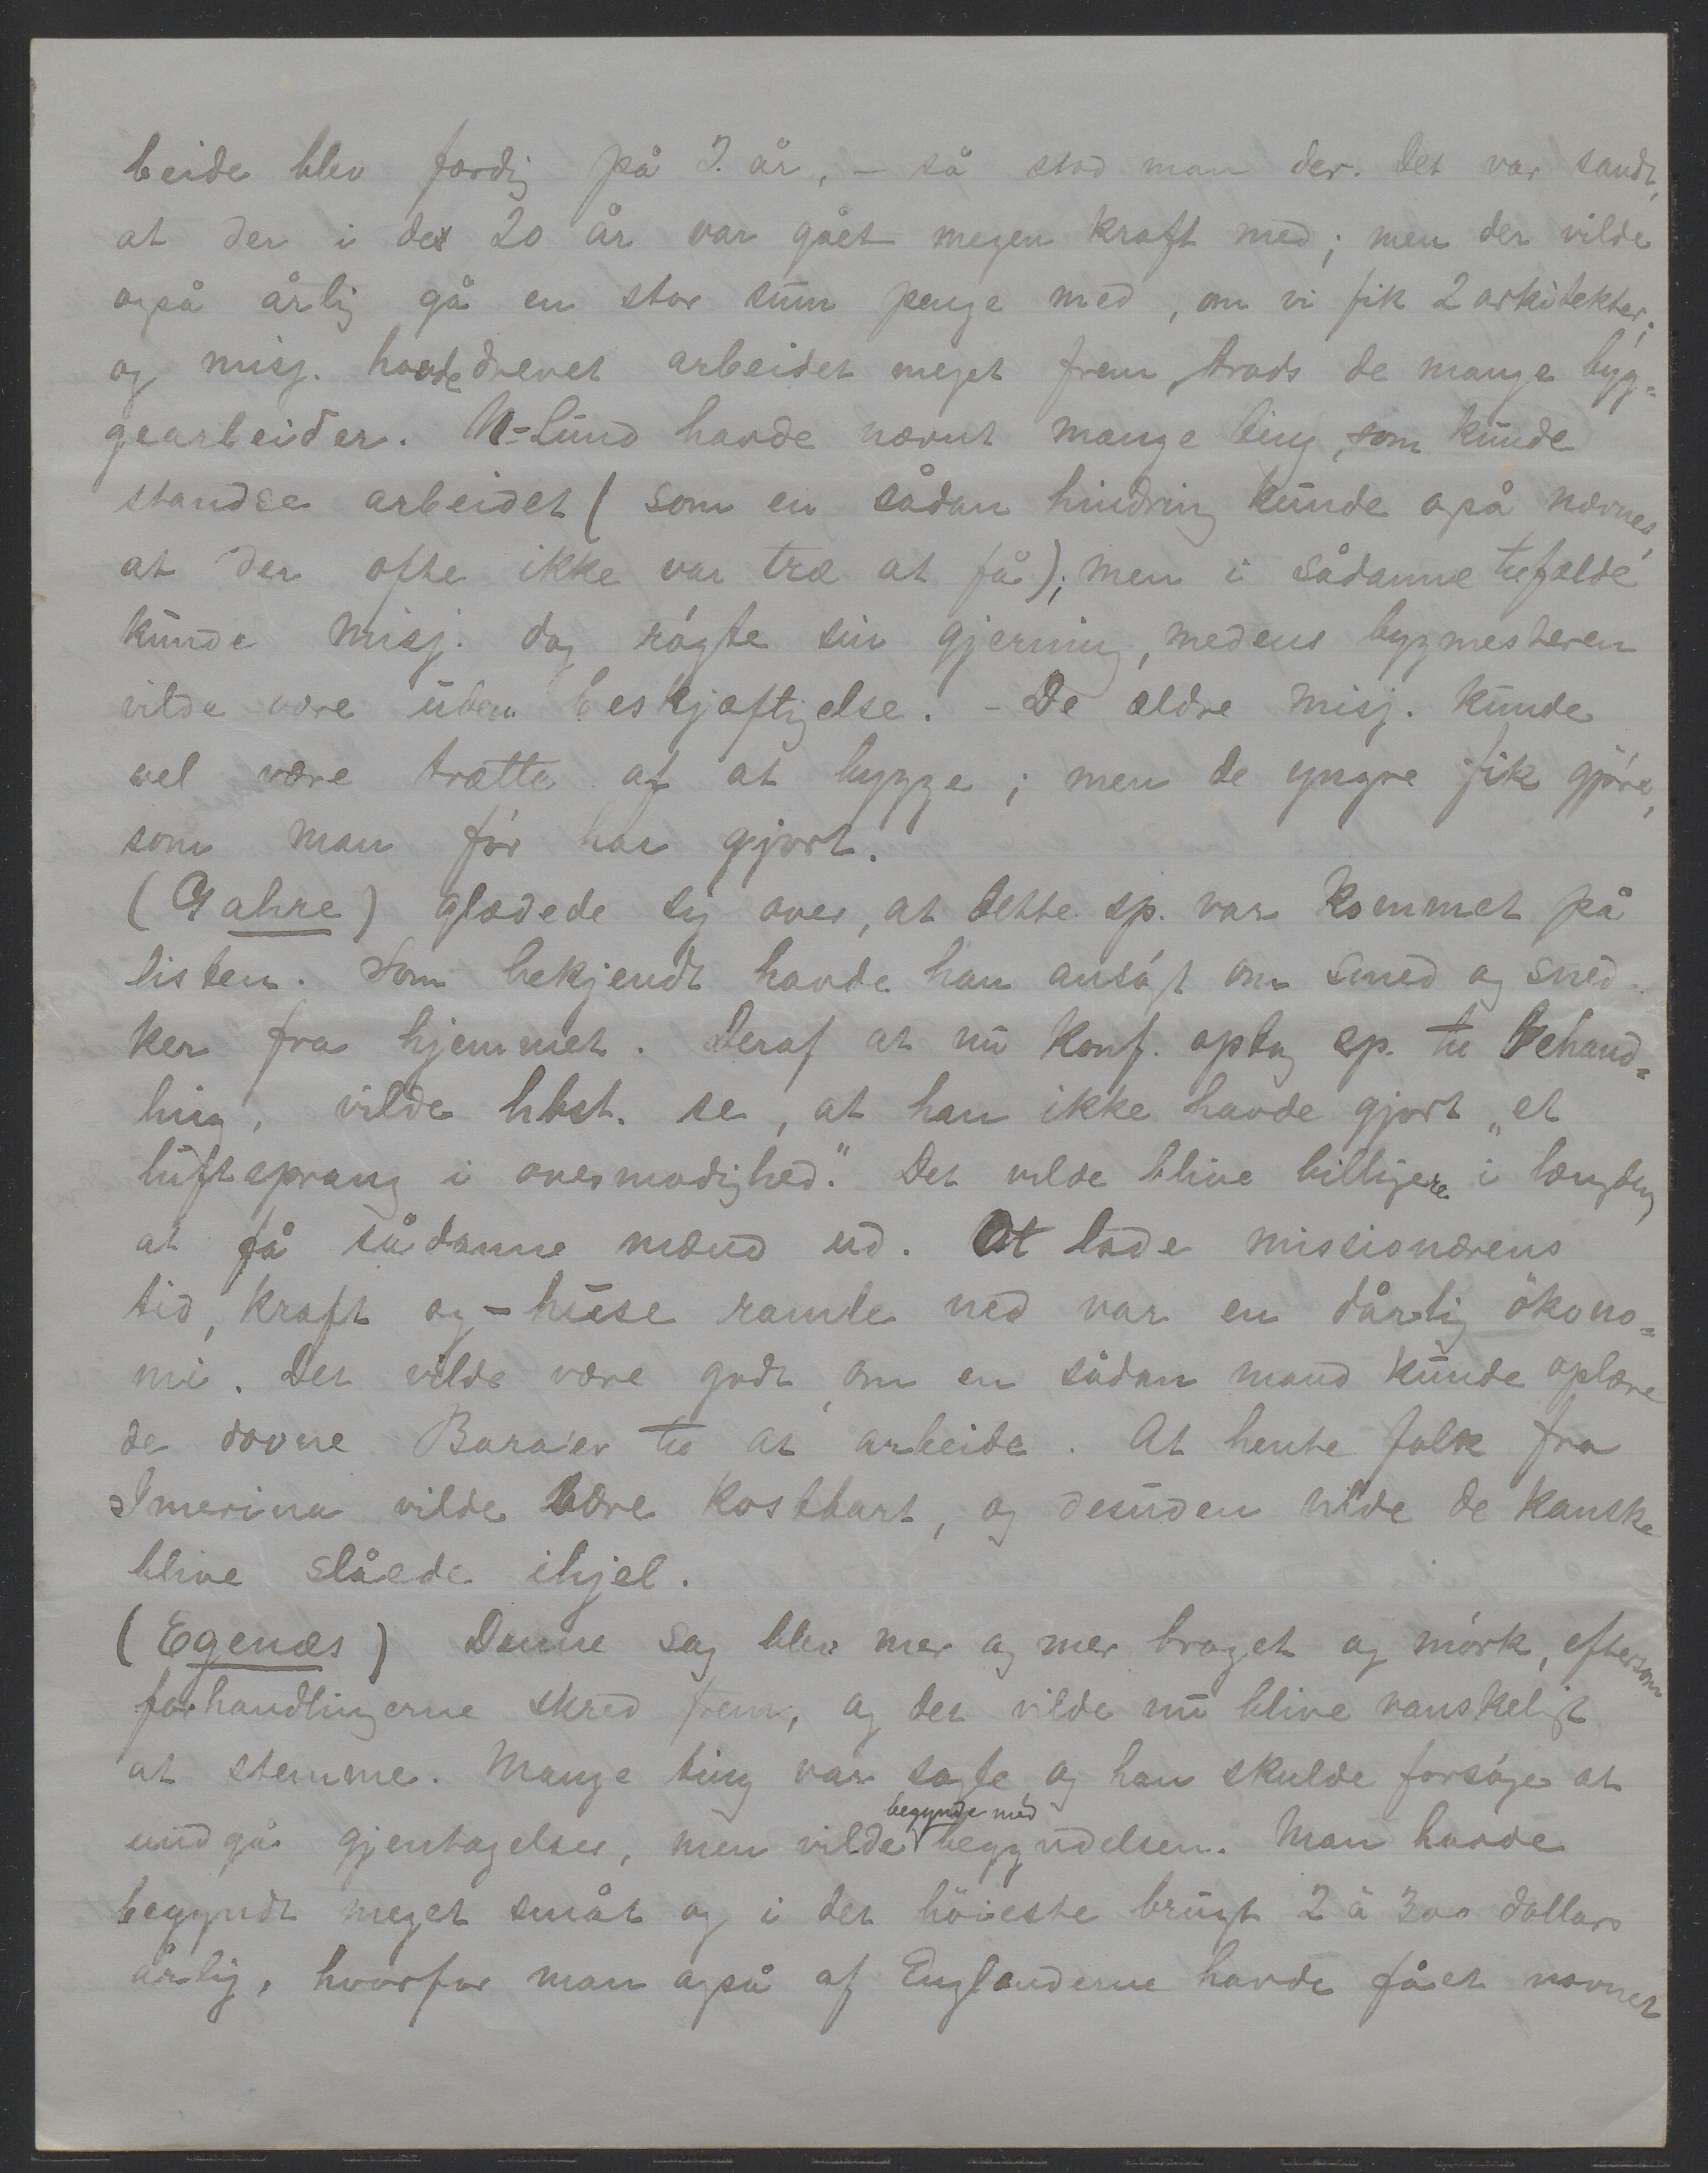 beide blev færdig på 2. år, – så stod man der. Det var sandt,
at der i det 20 år var gået megen kraft med; men der vilde
også årlig gå en stor sum penge med, om vi fik 2 arkitekter;
og misj. havde drevet arbeidet meget frem trods de mange byg=
gearbeider. N-Lund havde nævnt mange ting, som kunde
standse arbeidet (som en sådan hindring kunde også nævnes,
at der ofte ikke var træ at få); men i sådanne tilfælde
kunde misj. dog røgte sin gjerning, medens bygmesteren
vilde være uden beskjæftigelse. – De ældre misj. kunde
vel være trætte af at bygge; men de yngre fik gjøre,
som man før har gjort.
(Gahre) glædede sig over, at dette sp. var kommet på
listen. Som bekjendt havde han ansøgt om smed og sned-
ker fra hjemmet. Deraf at nu konf. optog sp. til behand=
ling, vilde hbst. se, at han ikke havde gjort „et
luftsprang i overmodighed." Det vilde blive billigere i længden
at få sådanne mænd ud. At lade missionærens
tid, kraft og – huse ramle ned var en dårlig økono=
mi. Det vilde være godt, om en sådan mand kunde oplære
de dovne Bara'er til at arbeide. At hente folk fra
Imerina vilde være kostbart, og desuden vilde de kanske
blive slåede ihjel.
(Egenæs) Denne sag blev mer og mer broget og mørk, eftersom
forhandlingerne skred frem, og det vilde nu blive vanskeligt
at stemme. Mange ting var sagte og han skulde forsøge at
undgå gjentagelser, men vilde begynde med begyndelsen. Man havde
begyndt meget småt og i det høieste brugt 2 à 300 dollars
årlig, hvorfor man også af Englænderne havde fået navnet